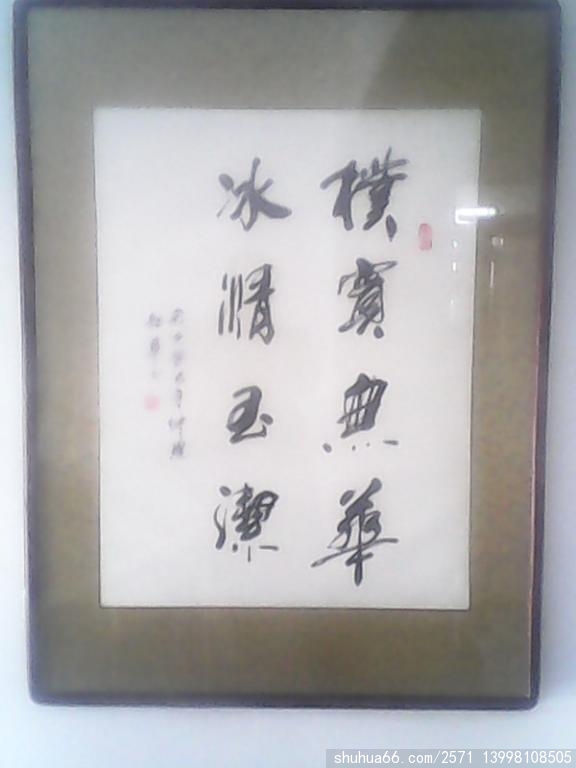 樸實無華
冰清玉潔
shuhua66.com/2571 13998108505